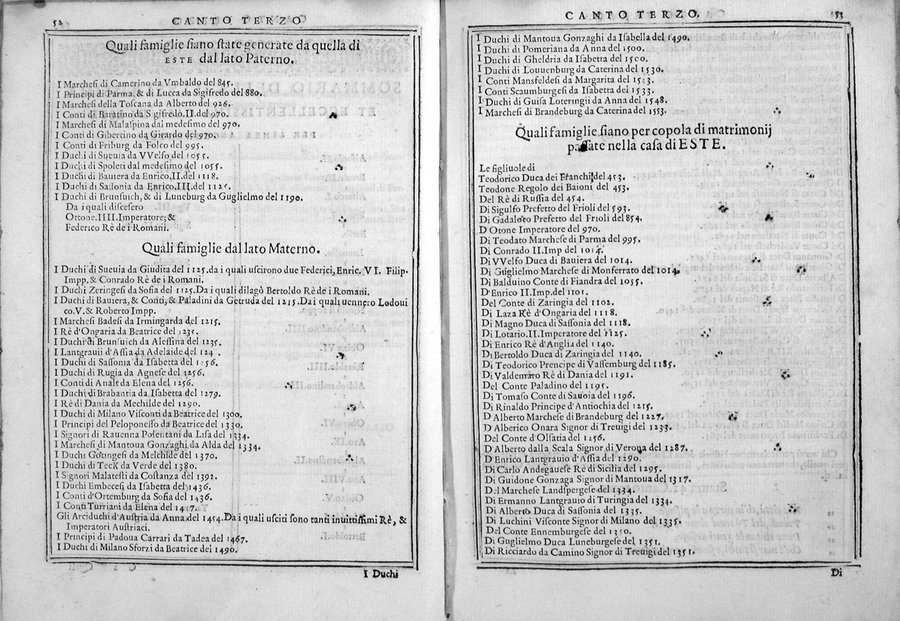 52 CANTO TERZO
Quali famiglie siano state generate da quella di
ESTE dal lato Paterno.
I Marchesi di Camerino da Vmbaldo del 845.
I Principi di Parma, & di Lucca da Sigifredo del 880.
I Marchesi della Toscana da Alberto del 926.
I Conti di Baratino da Sigifredo.II.del 970.
I Marchesi di Malaspina dal medesimo del 970.
I Conti di Gibertino da Girardo del 970.
I Conti di Friburg da Folco del 995.
I Duchi di Sueuia da VVelfo del 1055.
I Duchi di Spoleti dal medesimo del 1055.
I Duchi di Bauiera da Enrico.II.del 1118.
I Duchi di Sassonia da Enrico.III.del 1125.
I Duchi di Brunsuich, & di Luneburg da Guglielmo del 1190.
Da i quali discesero
Ottone.IIII.Imperatore; &
Federico Rè de i Romani.
Quali famiglie dal lato Materno.
I Duchi di Sueuia da Giudita del 1125.da i quali uscirono due Federici, Enric. VI. Filip.
Impp. & Conrado Rè de i Romani.
I Duchi Zeringesi da Sofia del 1125.Da i quali dilagò Bertoldo Rè de i Romani.
I Duchi di Bauiera, & Conti, & Paladini da Getruda del 1215.Da i quali uennero Lodoui
co.V. & Roberto Impp.
I Marchesi Badesi da Irmingarda del 1215.
I Rè d'Ongaria da Beatrice del 1235.
I Duchi di Brunsuich da Alessina del 1235.
I Lantgrauii d'Assia da Adelaide del
I Duchi di Sassonia da Isabetta del 1256.
I Duchi di Rugia da Agnese del 1256.
I Conti di Analt da Elena del 1256.
I Duchi di Brabantia da Isabetta del 1279.
I Rè di Dania da Mechilde del 1290.
I Duchi di Milano Visconti da Beatrice del 1300.
I Principi del Peloponesso da Beatrice del 1330.
I Signori di Rauenna Polentani da Lisa del 1334.
I Marchesi di Mantoua Gonzaghi da Alda del 1334.
I Duchi Goungesi da Melchisde del 1370.
I Duchi di Teck da Verde del 1380.
I Signori Malatesti da Costanza del 1392.
I Duchi Embecesi da Isabetta del 1436.
I Conti d'Ortemburg da Sofia del 1436.
I Conti Turriani da Elena del 1447.
Gli Arciduchi d'Austria da Anna del 1454.Da i quali usciti sono tanti inuitissimi Rè, &
Imperatori Austriaci.
I Principi di Padoua Carrari da Tadea del 1467.
I Duchi di Milano Sforzi da Beatrice del 1490.
I Duchi
CANTO TERZO. 53
I Duchi di Mantoua Gonzaghi da Isabella del 1490.
I Duchi di Pomeriana da Anna del 1500.
I Duchi di Gheldria da Isabetta del 1500.
I Duchi di Louuenburg da Caterina del 1530.
I Conti Mansfeldesi da Margarita del 1513.
I Conti Scaumburgesi da Isabetta del 1533.
I Duchi di Guisa Loteringii da Anna del 1548.
I Marchesi di Brandeburg da Caterina del 1553.
Quali famiglie siano per copola di matrimonij
passate nella casa di ESTE.
Le figliuole di
Teodorico Duca dei Franchi del 453.
Teodone Regolo dei Baioni del 453.
Del Rè di Russia del 454.
Di Sigulfo Prefetto del Frioli del 593.
Di Gadaloto Prefetto del Frioli del 854.
D'Otone Imperatore del 970.
Di Teodato Marchese di Parma del 995.
Di Conrado II.Imp del 1014.
Di VVelfo Duca di Bauiera del 1014.
Di Guglielmo Marchese di Monferrato del 1014.
Di Balduino Conte di Fiandra del 1055.
D'Enrico II.Imp.del 1101.
Del Conte di Zaringia del 1102.
Di Laza Rè d'Ongaria del 1118.
Di Magno Duca di Sassonia del 1118.
Di Lotario.II.Imperatore del 1125.
Di Enrico Rè d'Anglia del 1140.
Di Bertoldo Duca di Zaringia del 1140.
Di Teodorico Prencipe di Vassemburg del 1185.
Di Valdemaro Rè di Dania del 1191.
Del Conte Paladino del 1195.
Di Tomaso Conte di Sauoia del 1196.
Di Rinaldo Principe d'Antiochia del 1215.
D'Alberto Marchese di Brandeburg del 1227.
D'Alberico Onara Signor di Treuigi del 1233.
Del Conte d'Olsatia del 1256.
D'Alberto dalla Scala Signor di Verona del 1287.
D'Enrico Lantgrauio d'Assia del 1290.
Di Carlo Andegauese Rè di Sicilia del 1295.
Di Guidone Gonzaga Signor di Mantoua del 1317.
Del Marchese Landspergese del 1334.
Di Ermanno Lantgrauio di Turingia del 1334.
Di Alberto Duca di Sassonia del 1335.
Di Luchini Visconte Signor di Milano del 1335.
Del Conte Ennemburgese del 1340.
Di Guglielmo Duca Luneburgese del 1351.
Di Ricciardo da Camino Signor di Treuigi del 1351.
Di